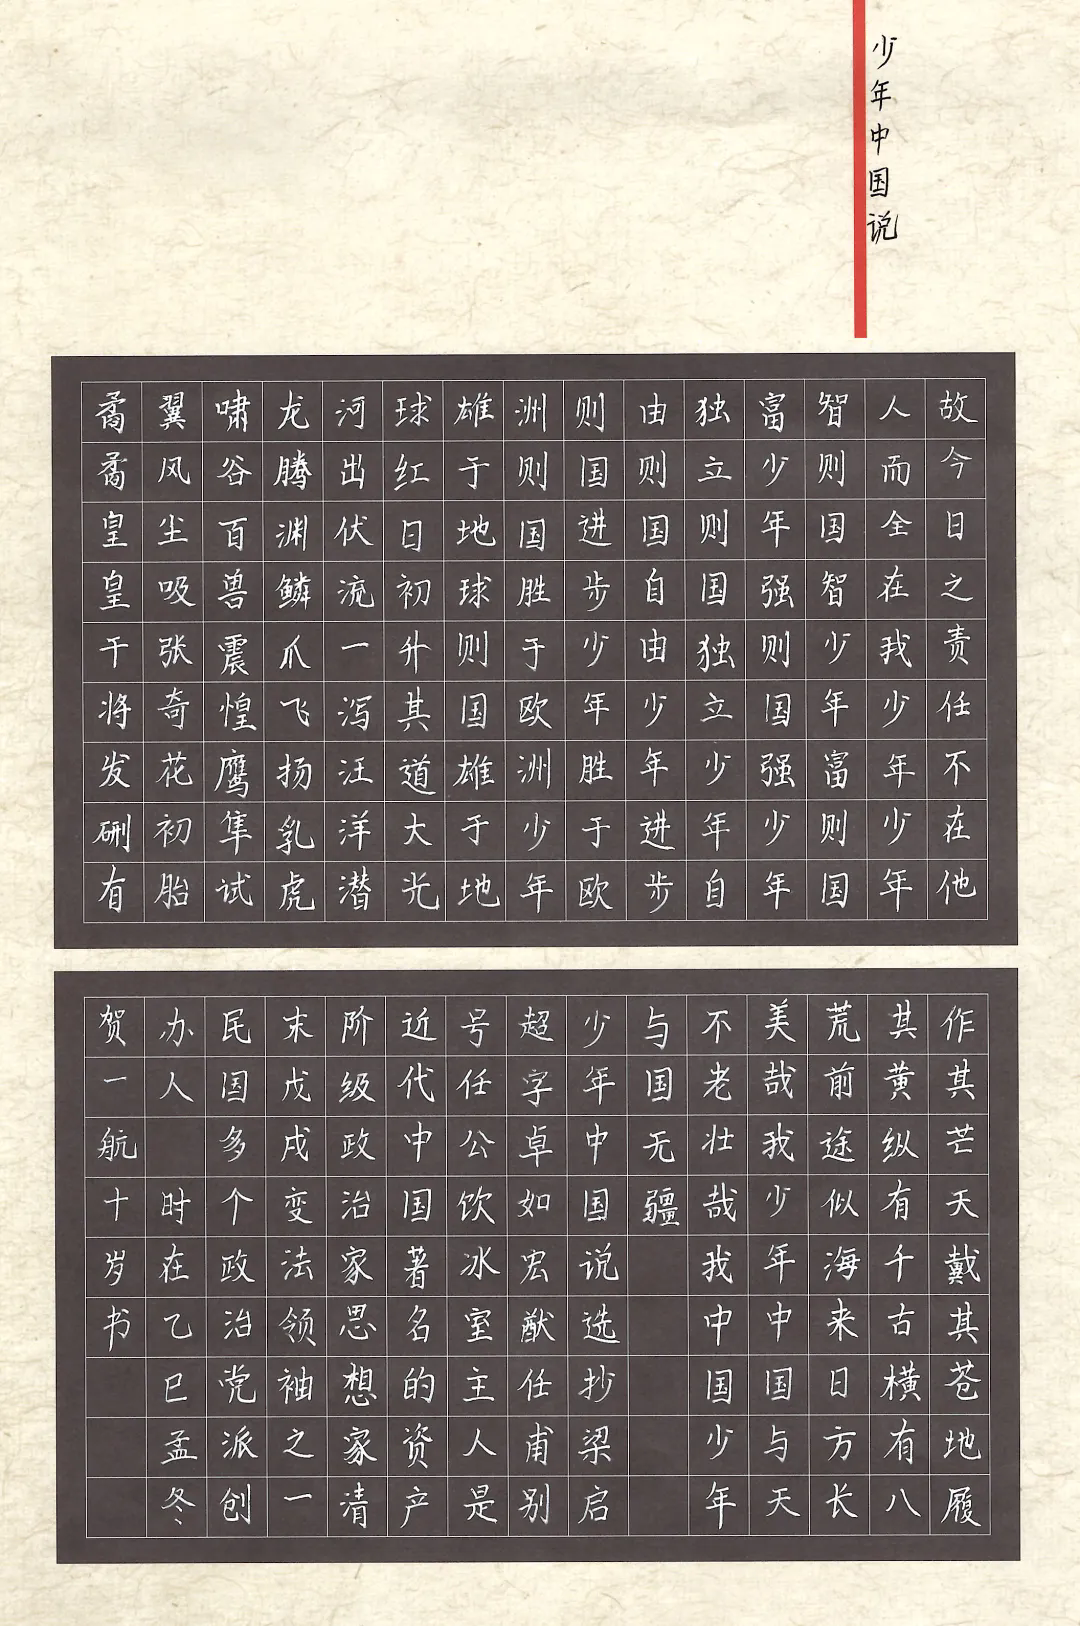 少年中国说
故今日之责任不在他
人而全在我少年少年
智则国智少年富则国
富少年强则国强少年
独立则国独立少年自
由则国自由少年进步
则国进步少年胜于欧
洲则国胜于欧洲少年
雄于地球则国雄于地
球红日初升其道大光
河出伏流一泻汪洋潜
龙腾渊鳞爪飞扬乳虎
啸谷百兽震惶鹰隼试
翼风尘吸张奇花初胎
矞矞皇皇干将发硎有
作其芒天戴其苍地履
其黄纵有千古横有八
荒前途似海来日方长
美哉我少年中国与天
不老壮哉我中国少年
与国无疆
少年中国说选抄梁启
超字卓如宏猷任甫别
号任公饮冰室主人是
近代中国著名的资产
阶级政治家思想家清
末戊戌变法领袖之一
民国多个政治党派创
办人 时在乙巳孟冬
贺一航十岁书